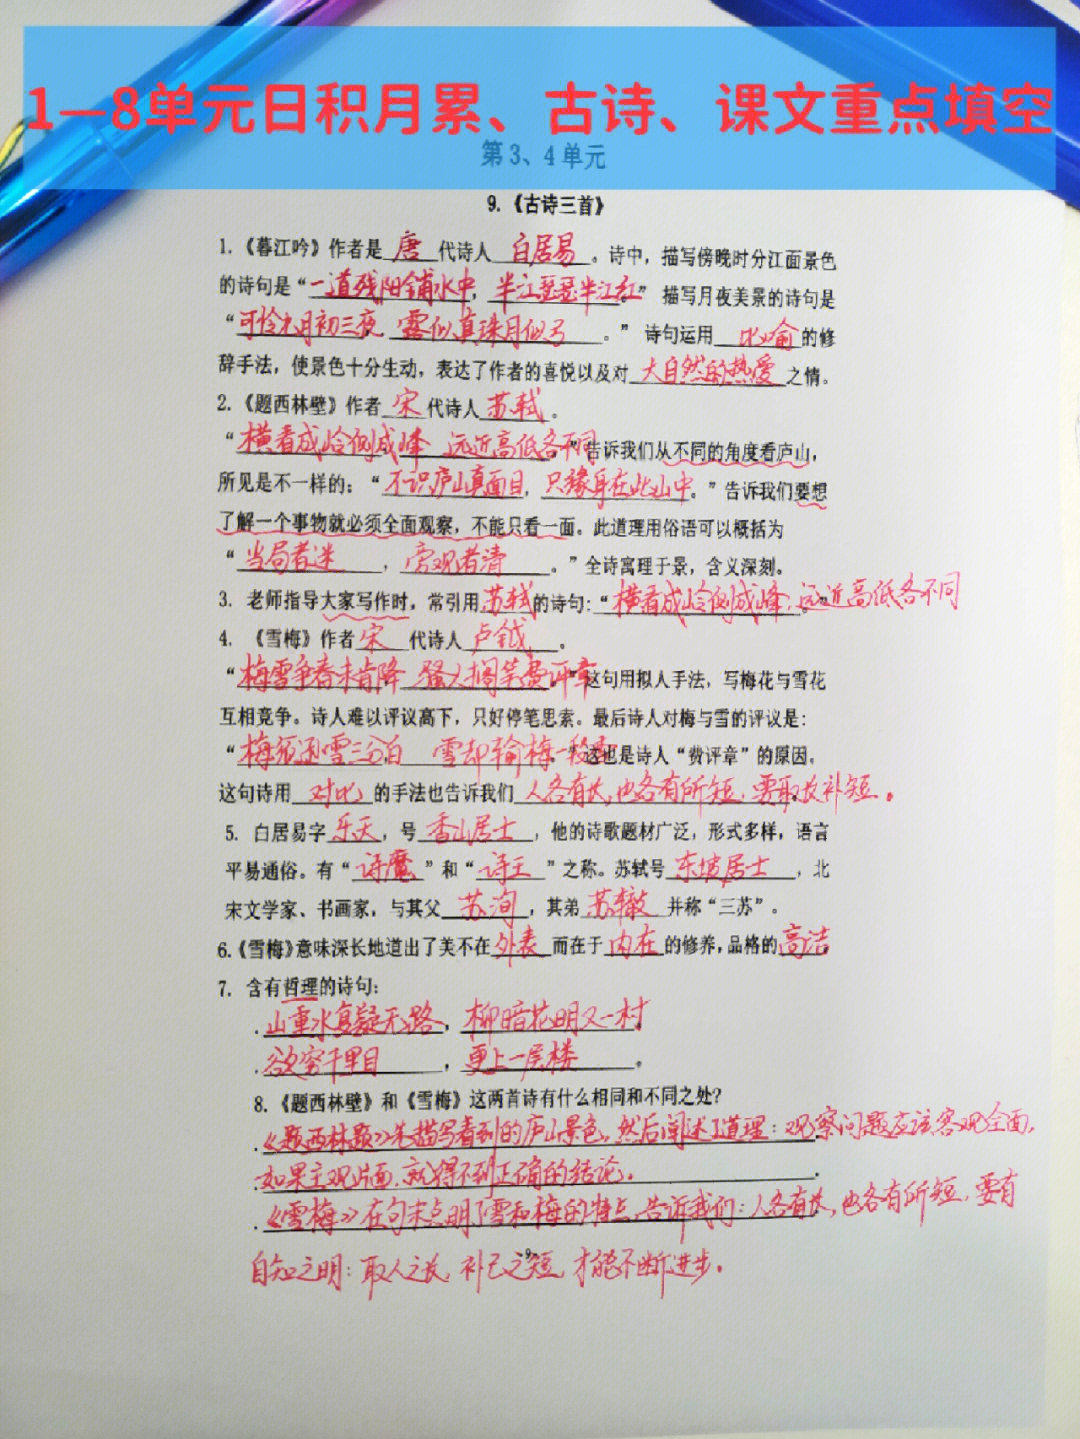 1—8单元日积月累、古诗、课文重点填空
第3、4单元
9.《古诗三首》
1.《暮江吟》作者是唐代诗人白居易。诗中，描写傍晚时分江面景色
的诗句是“一道残阳铺水中，半江瑟瑟半江红”描写月夜美景的诗句是
“可怜九月初三夜，露似真珠月似弓。”诗句运用比喻的修
辞手法，使景色十分生动，表达了作者的喜悦以及对大自然的热爱之情。
2.《题西林壁》作者宋代诗人苏轼。
“横看成岭侧成峰 远近高低各不同”告诉我们从不同的角度看庐山，
所见是不一样的；“不识庐山真面目，只缘身在此山中。”告诉我们要想
了解一个事物就必须全面观察，不能只看一面。此道理用俗语可以概括为
“当局者迷，旁观者清。”全诗寓理于景，含义深刻。
3. 老师指导大家写作时，常引用苏轼的诗句：“横看成岭侧成峰，远近高低各不同
4. 《雪梅》作者宋代诗人卢钺。
“梅雪争春未肯降 骚人搁笔费评章”这句用拟人手法，写梅花与雪花
互相竞争。诗人难以评议高下，只好停笔思索。最后诗人对梅与雪的评议是：
“梅须逊雪三分白 雪却输梅一段香”这也是诗人“费评章”的原因。
这句诗用对比的手法也告诉我们人各有长，也各有所短，要取长补短。
5. 白居易字乐天，号香山居士，他的诗歌题材广泛，形式多样，语言
平易通俗。有“诗魔”和“诗王”之称。苏轼号东坡居士，北
宋文学家、书画家，与其父苏洵，其弟苏辙并称“三苏”。
6.《雪梅》意味深长地道出了美不在外表而在于内在的修养，品格的高洁
7. 含有哲理的诗句：
山重水复疑无路，柳暗花明又一村
欲穷千里目，更上一层楼。
8.《题西林壁》和《雪梅》这两首诗有什么相同和不同之处？
《题西林题》先描写看到的庐山景色，然后阐述了道理：观察问题应该客观全面，
如果主观片面，就得不到正确的结论。
《雪梅》在句末点明了雪和梅的特点，告诉我们：人各有长，也各有所短，要有
自知之明：取人之长，补己之短，才能不断进步。
9